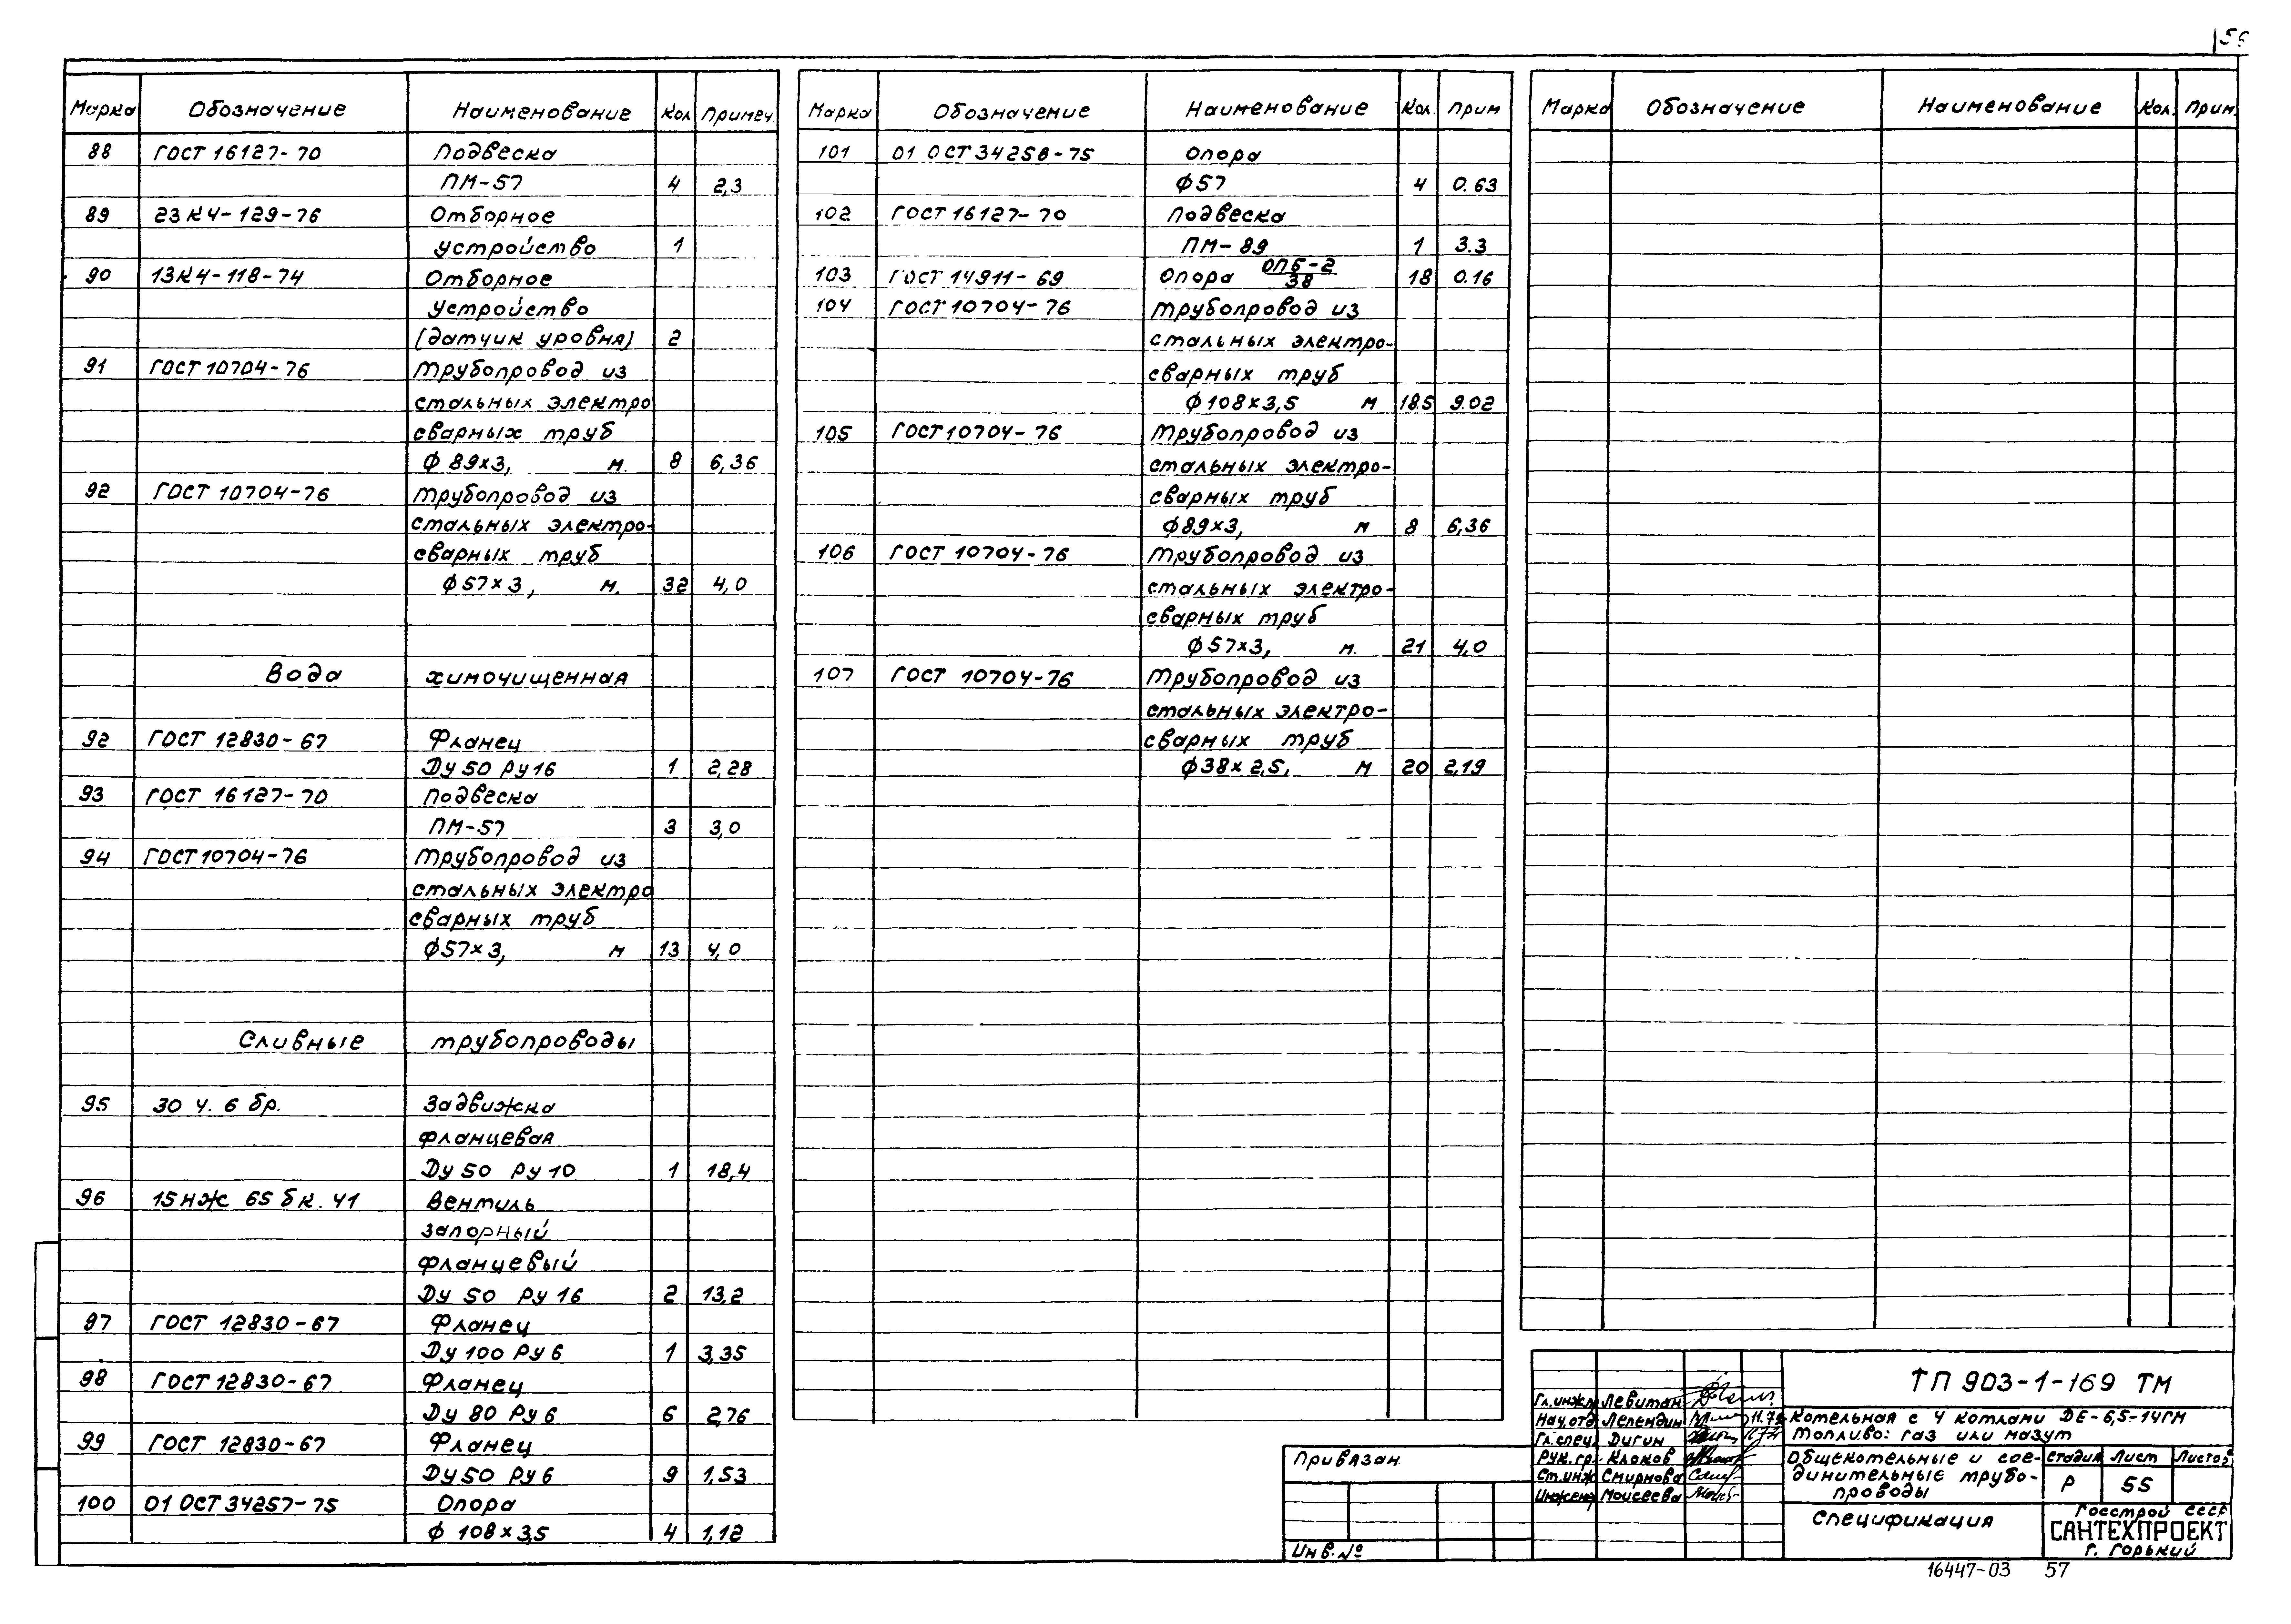 56
Марка Обозначение Наименование Кол Примеч.
88 ГОСТ 16127-70 Подвеска
ПМ-57 4 2,3
89 23К4-129-76 Отборное
устройство 1
90 13К4-118-74 Отборное
устройство
(датчик уровня) 2
91 ГОСТ 10704-76 Трубопровод из
стальных электро
сварных труб
Ф 89х3, м. 8 6,36
92 ГОСТ 10704-76 Трубопровод из
стальных электро-
сварных труб
Ф57х3, м. 32 4,0
Вода химочищенная
92 ГОСТ 12830-67 Фланец
Ду 50 Ру16 1 2,28
93 ГОСТ 16127-70 Подвеска
ПМ-57 3 3,0
94 ГОСТ 10704-76 Трубопровод из
стальных электро
сварных труб
Ф57х3, м 13 4,0
Сливные трубопроводы
95 30 ч. 6 бр. Задвижка
фланцевая
Ду 50 Ру 10 1 18,4
96 15нж 65 бк. Ч1 Вентиль
запорный
фланцевый
Ду 50 Ру 16 2 13,2
97 ГОСТ 12830-67 Фланец
Ду 100 Ру 6 1 3,35
98 ГОСТ 12830-67 Фланец
Ду 80 Ру 6 6 2,76
99 ГОСТ 12830-67 Фланец
Ду 50 Ру 6 9 1,53
100 01 ОСТ 34257-75 Опора
Ф 108х3,5 4 1,12
Марка Обозначение Наименование Кол. Прим
101 01 ОСТ 34256-75 Опора
Ф57 4 0.63
102 ГОСТ 16127-70 Подвеска
ПМ-89 1 3.3
103 ГОСТ 14911-69 Опора ОПБ-2/38 18 0.16
104 ГОСТ 10704-76 Трубопровод из
стальных электро-
сварных труб
Ф108х3,5 м 18.5 9.02
105 ГОСТ 10704-76 Трубопровод из
стальных электро-
сварных труб
Ф89х3, м 8 6,36
106 ГОСТ 10704-76 Трубопровод из
стальных электро-
сварных труб
Ф57х3, м. 21 4,0
107 ГОСТ 10704-76 Трубопровод из
стальных электро-
сварных труб
Ф38х2,5, м 20 2,19
Марка Обозначение Наименование Кол. Прим.
Привязан
Инв.№
Гл.инж. Левитан
Нач.отд Лепендин 11.79
Гл.спец. Дугин
Рук.гр. Клоков
Ст.инж Смирнова
Инженер Моисеева
ТП 903-1-169 ТМ
Котельная с 4 котлами ДЕ-6,5-14ГМ
Топливо: газ или мазут
Общекотельные и сое-
динительные трубо-
проводы
Стадия Лист Листов
Р 55
Спецификация
Госстрой СССР
САНТЕХПРОЕКТ
г. Горький
16447-03 57